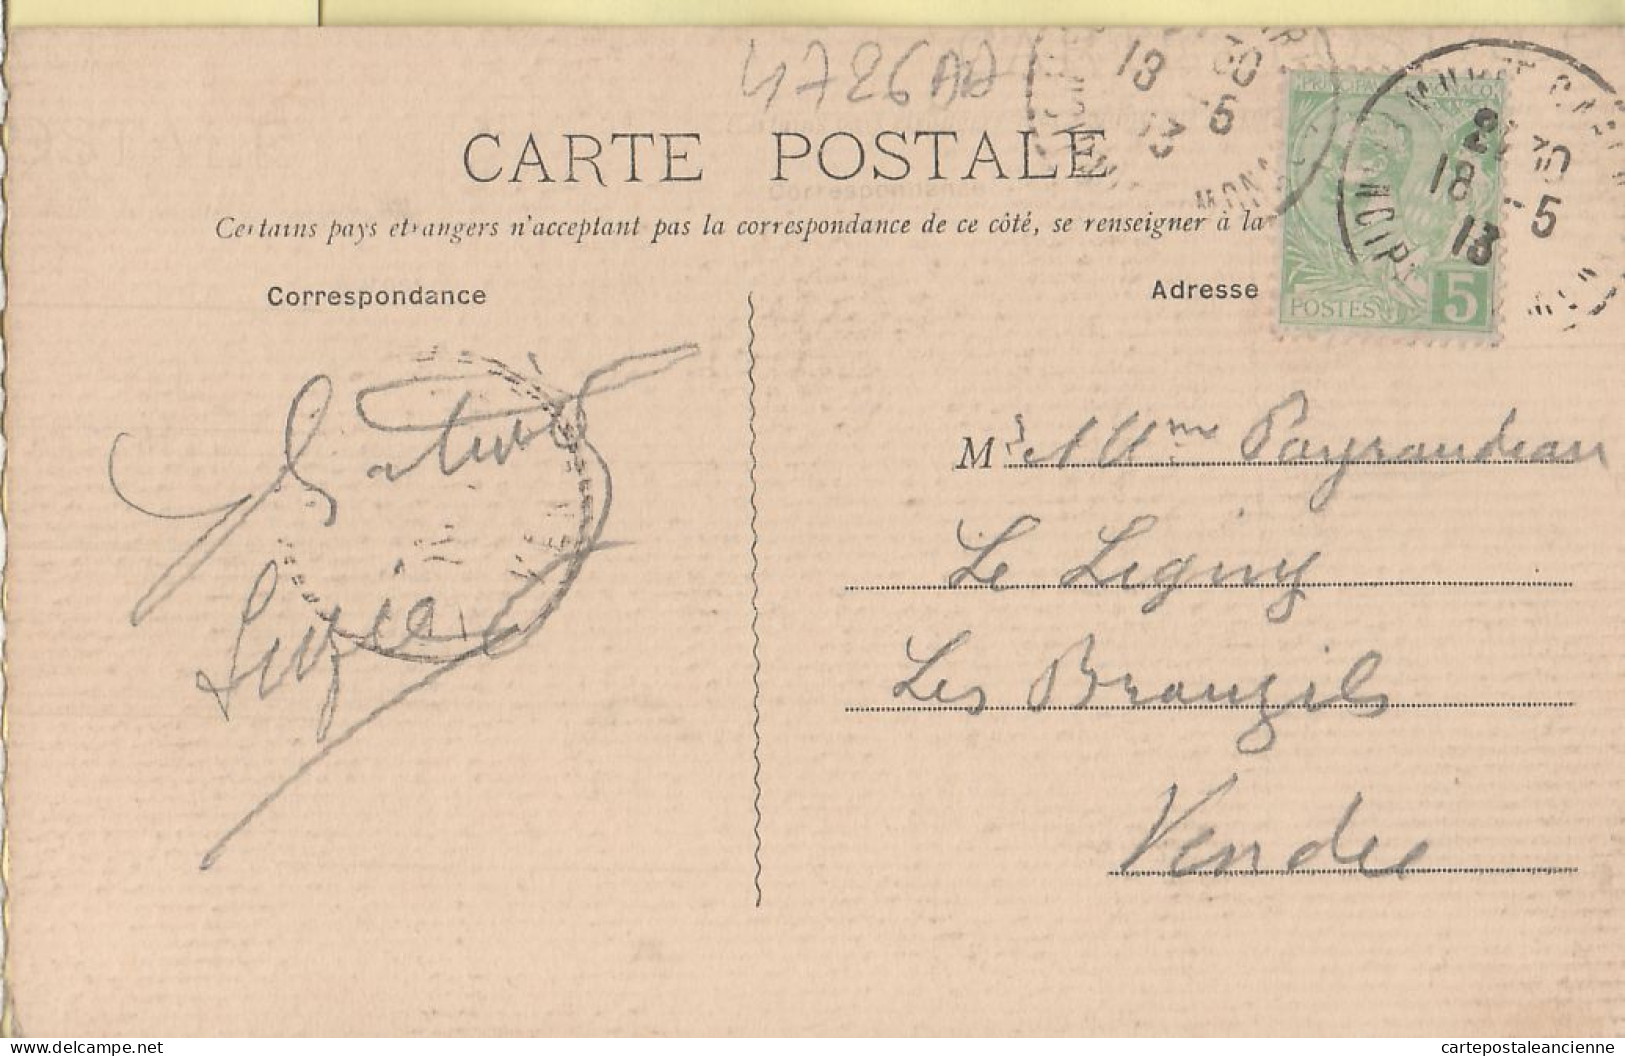 4726AA
CARTE POSTALE
Certains pays etrangers n'acceptant pas la correspondance de ce côté, se renseigner à la
Correspondance
Adresse
PRINCIPAUTÉ DE MONACO
POSTES
5
MONTE CARLO
18 5
13
18 -5
13
Lucie
M
Payraudeau
Le Ligny
Les Brouzils
Vendée
delcampe.net
cartepostaleancienne